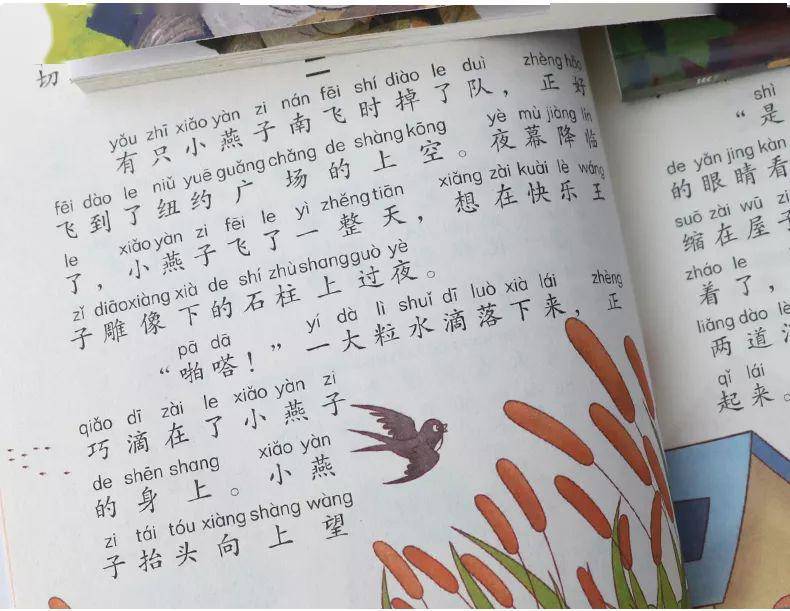 切
yǒu zhī xiǎo yàn zi nán fēi shí diào le duì zhèng hǎo
有只小燕子南飞时掉了队，正好
fēi dào le niǔ yuē guǎng chǎng de shàng kōng yè mù jiàng lín
飞到了纽约广场的上空。夜幕降临
le xiǎo yàn zi fēi le yì zhěng tiān xiǎng zài kuài lè wáng
了，小燕子飞了一整天，想在快乐王
zǐ diāo xiàng xià de shí zhù shang guò yè
子雕像下的石柱上过夜。
pā dā yí dà lì shuǐ dī luò xià lái zhèng
“啪嗒！”一大粒水滴落下来，正
qiǎo dī zài le xiǎo yàn zi
巧滴在了小燕子
de shēn shang xiǎo yàn
的身上。小燕
zi tái tóu xiàng shàng wàng
子抬头向上望
shì
“是
de yǎn jing kàn
的眼睛看
suō zài wū zi
缩在屋子
zháo le
着了，
liǎng dào
两道
qǐ lái
起来。